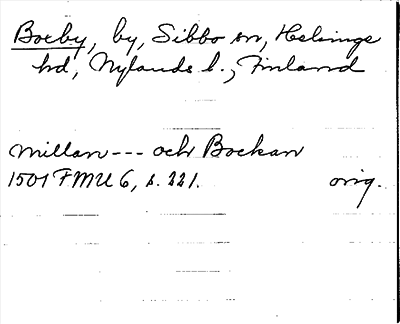 Boxby, by, Sibbo sn, Helsinge
hd, Nylands l., Finland
mellan --- och Backan
1501 FMU 6, s. 221.
orig.